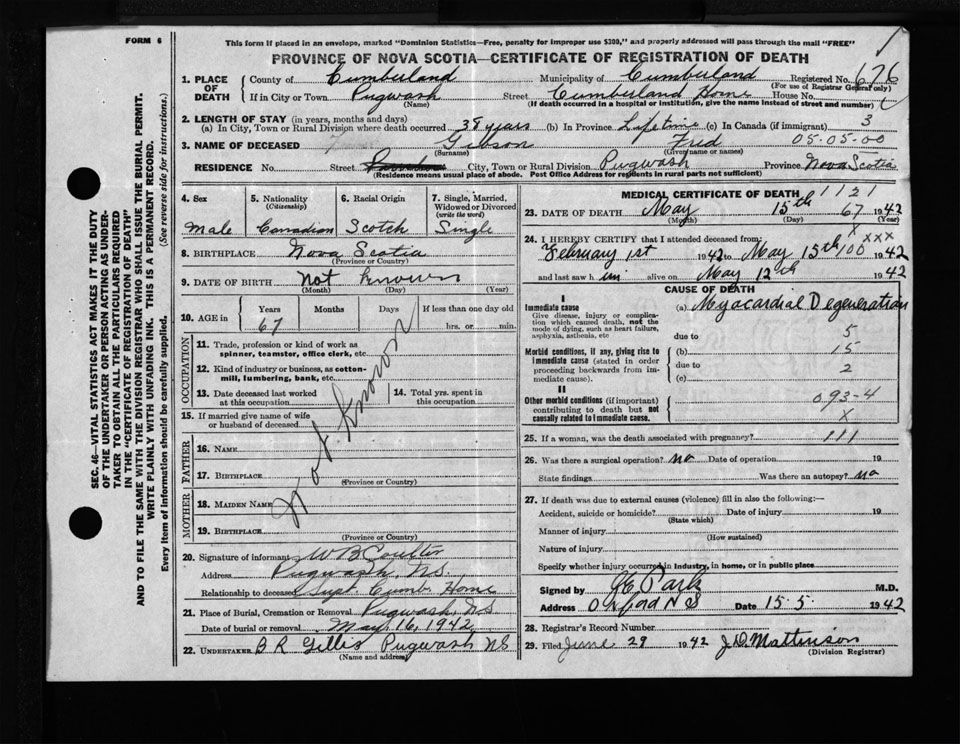 FORM 6
This form if placed in an envelope, marked "Dominion Statistics—Free, penalty for improper use $300," and properly addressed will pass through the mail "FREE"
PROVINCE OF NOVA SCOTIA—CERTIFICATE OF REGISTRATION OF DEATH
SEC. 46—VITAL STATISTICS ACT MAKES IT THE DUTY
OF THE UNDERTAKER OR PERSON ACTING AS UNDER-
TAKER TO OBTAIN ALL THE PARTICULARS REQUIRED
IN THE "CERTIFICATE OF REGISTRATION OF DEATH"
AND TO FILE THE SAME WITH THE DIVISION REGISTRAR WHO SHALL ISSUE THE BURIAL PERMIT.
WRITE PLAINLY WITH UNFADING INK. THIS IS A PERMANENT RECORD.
Every item of information should be carefully supplied. (See reverse side for instructions.)
1. PLACE OF DEATH
County of Cumberland Municipality of Cumberland Registered No. 676
(For use of Registrar General only)
If in City or Town Pugwash Street Cumberland Home House No.
(Name) (If death occurred in a hospital or institution, give the name instead of street and number)
2. LENGTH OF STAY (in years, months and days)
(a) In City, Town or Rural Division where death occurred 38 years (b) In Province Lifetime (c) In Canada (if immigrant) 3
3. NAME OF DECEASED Gibson Fred 05-05-00
(Surname) (Given name or names)
RESIDENCE No. Street City, Town or Rural Division Pugwash Province Nova Scotia
(Residence means usual place of abode. Post Office Address for residents in rural parts not sufficient)
4. Sex
Male
5. Nationality
(Citizenship)
Canadian
6. Racial Origin
Scotch
7. Single, Married,
Widowed or Divorced
(write the word)
Single
8. BIRTHPLACE Nova Scotia
(Province or Country)
9. DATE OF BIRTH Not Known
(Month) (Day) (Year)
10. AGE in
Years Months Days If less than one day old
67 hrs. or min.
OCCUPATION
11. Trade, profession or kind of work as
spinner, teamster, office clerk, etc.
12. Kind of industry or business, as cotton-
mill, lumbering, bank, etc.
13. Date deceased last worked
at this occupation
14. Total yrs. spent in
this occupation
Not Known
15. If married give name of wife
or husband of deceased
FATHER
16. NAME
17. BIRTHPLACE
(Province or Country)
MOTHER
18. MAIDEN NAME
19. BIRTHPLACE
(Province or Country)
20. Signature of informant W B Coulter
Address Pugwash, N.S.
Relationship to deceased Supt. Cumb. Home
21. Place of Burial, Cremation or Removal Pugwash, N.S
Date of burial or removal May, 16, 1942
22. UNDERTAKER B R Gillis Pugwash NS
(Name and address)
MEDICAL CERTIFICATE OF DEATH 1121
23. DATE OF DEATH May 15th 67 1942
(Month) (Day) (Year)
x
24. I HEREBY CERTIFY that I attended deceased from:
xxx
February 1st 1942 to May 15th 100 1942
and last saw him alive on May 12th 1942
CAUSE OF DEATH
I
Immediate cause
Give disease, injury or complica-
tion which caused death, not the
mode of dying, such as heart failure,
asphyxia, asthenia, etc
(a) Myocardial Degeneration
due to 5
Morbid conditions, if any, giving rise to
immediate cause (stated in order
proceeding backwards from im-
mediate cause).
(b) 15
due to 2
(c)
II
Other morbid conditions (if important)
contributing to death but not
causally related to immediate cause.
093-4
x
25. If a woman, was the death associated with pregnancy? 111
26. Was there a surgical operation? no Date of operation 19
State findings Was there an autopsy? no
27. If death was due to external causes (violence) fill in also the following:—
Accident, suicide or homicide? Date of injury 19
(State which)
Manner of injury
(How sustained)
Nature of injury
Specify whether injury occurred in industry, in home, or in public place
Signed by M.D.
Address Oxford N S Date 15.5. 1942
28. Registrar's Record Number
29. Filed June 29 1942 J.D. Mattinson
(Division Registrar)